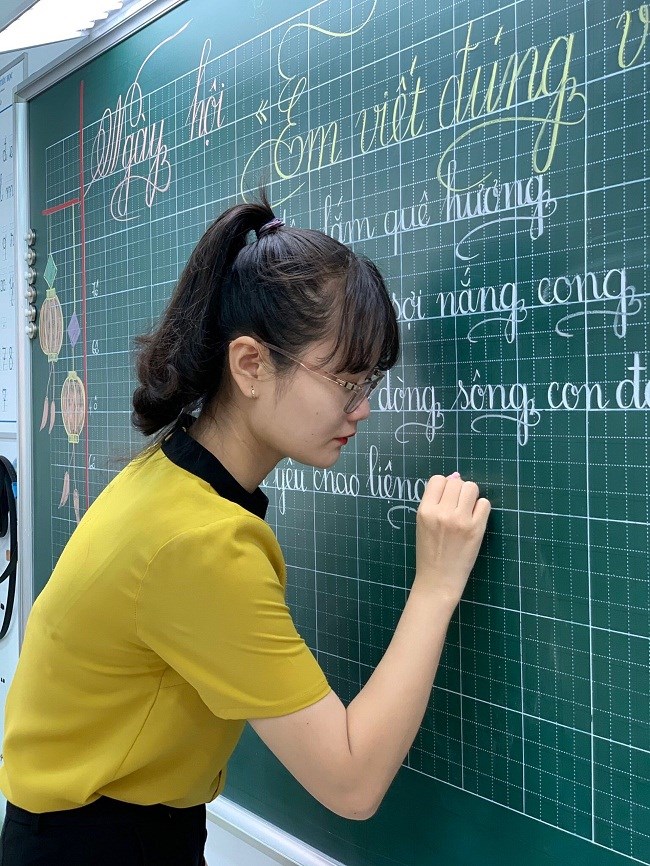 Ngày hội « Em viết đúng v
lắm quê hương
sợi nắng cong
dòng sông con đ
yêu chao liệng